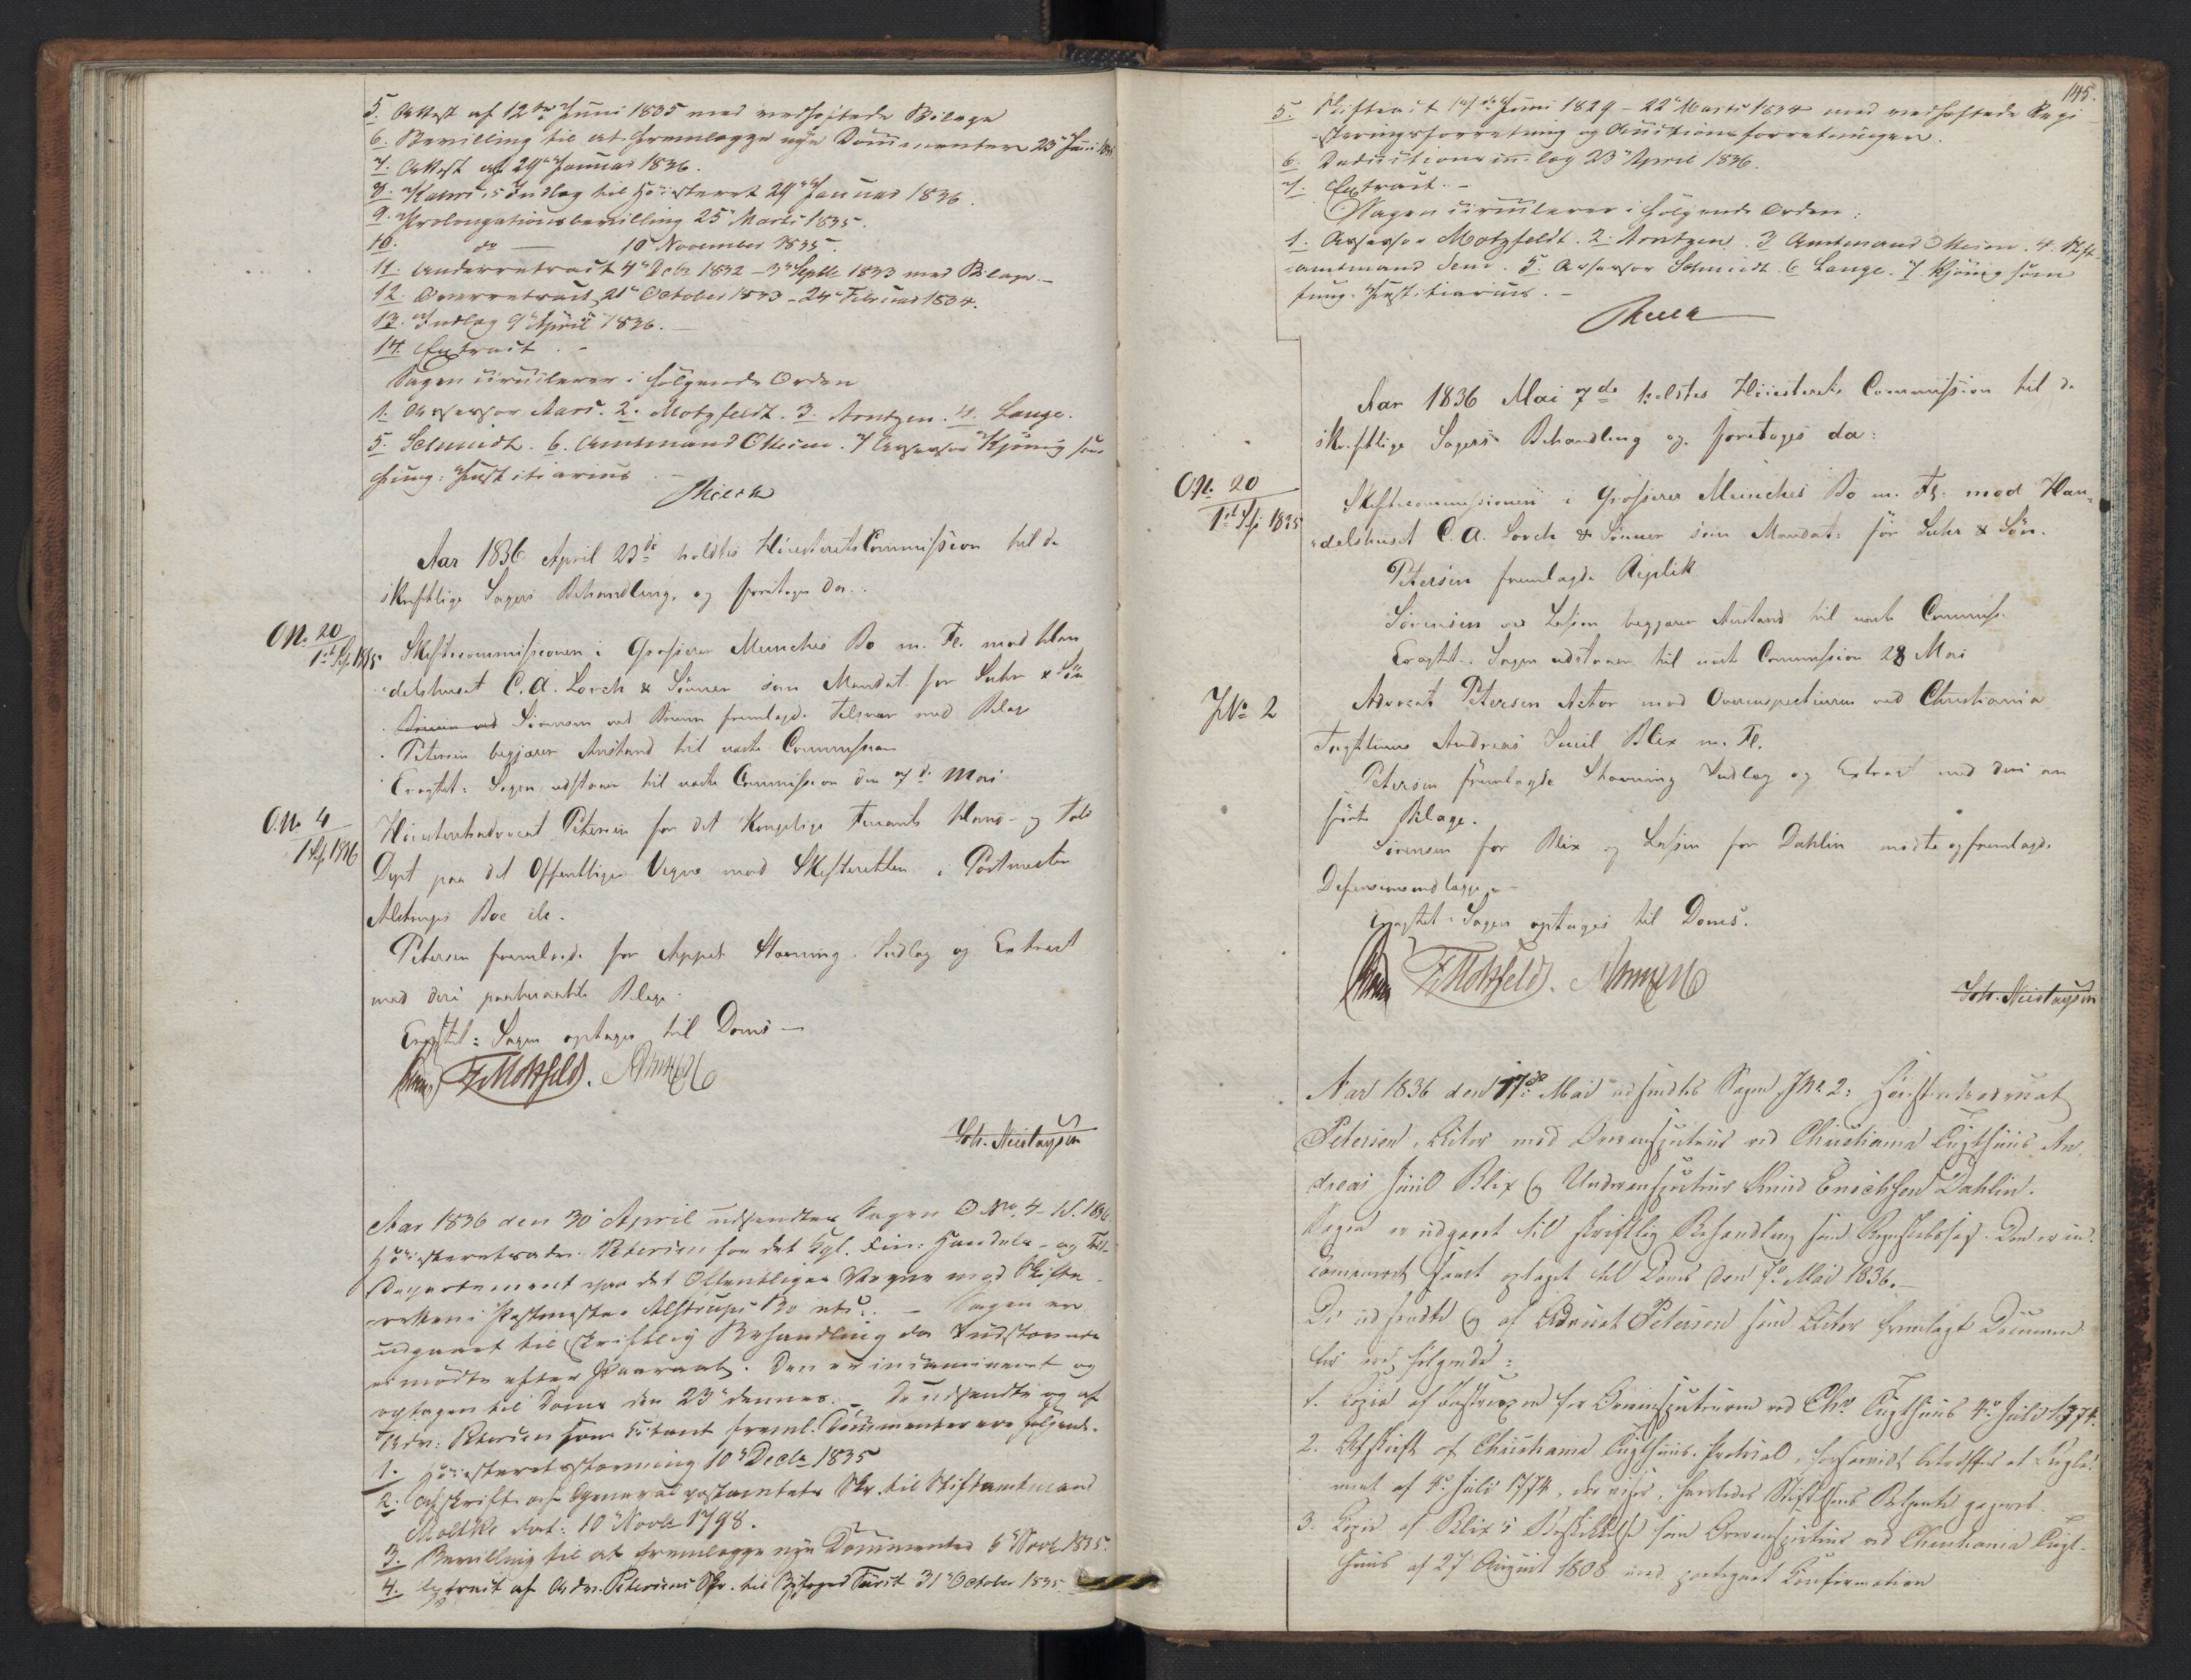 5. Attest af 12te Juni 1835 med vedhæftede Bilage
6. Bevilling til at fremlægge nye Documenter 23 Juni 1835
7. Attest af 29 Januar 1836.
8. Indlæg til Höiesteret 29 Januar 1836.
9. Prolongationsbevilling 25 Marts 1835.
10. do — 10 November 1835.
11. Underretsact 4 Decbr 1832 – 3 Septbr 1833 med Bilage. –
12. Overretsact 21 October 1833 – 24 Februar 1834.
13. Indlæg 9 April 1836. –
14. Extract. –
Sagen circulerer i følgende Orden
1. Assessor Aars. 2. Motzfeldt. 3. Arntzen. 4. Lange.
5. Schmidt. 6. Amtmand Thesen. 7 Assessor Kjönig som
fung: Justitiarius –
Aar 1836 April 23de holdtes Höiesterets Commission til de
skriftlige Sagers Behandling, og foretages da:
O.No. 20
1ste Sp. 1835
Skiftecommissionen i Grosserer Munches Bo m. Fl. mod Han
delshuset C. A. Lorch & Sönner som Mandat. for Suhr & Sön
Sörensen ved Bruun fremlagde Tilsvar med Bilag
Petersen begjærer Anstand til næste Commission
Eragtet: Sagen udstaaer til næste Commission den 7de Mai
O.No 4
1 Sp 1836
Höiesteretsadvocat Petersen for det Kongelige Finants Hand- og Told
Dept paa det Offentliges Vegne mod Skifteretten i Postmester
Alstrups Boe etc.
Petersen fremlagde for Appct Stævning, Indlæg og Extract
med deri paaberaabte Bilage.
Eragtet: Sagen optages til Doms –
F. Motzfeldt. Arntzen
Joh. Nicolaysen
Aar 1836 den 30 April udsendtes Sagen O No. 4 – 1836
Höiesteretsadv. Petersen for det Kgl. Fin: Handels- og Told-
Departement paa det Offentliges Vegne mod Skifte-
retten i Postmester Alstrups Bo etc. – Sagen er
udgaaet til skriftlig Behandling da Indstævnte
ei mödte efter Paaraab. Den er incamineret og
optagen til Doms den 23 dennes. – De udsendte og af
Adv: Petersen som Citant freml. Documenter ere følgende.
1. Höiesteretsstævning 10 Decbr 1835
2. Afskrift af Generalpostamtets Skr. til Stiftamtmand
Moltke dat: 10 Novbr 1798.
3. Bevilling til at fremlægge nye Documenter 6 Novbr 1835.
4. Extract af Adv. Petersens Skr. til 31 October 1835
145.
5. Skifteact Juni 1829 – 22 Marts 1834 med vedhæftede Regi-
streringsforretning og Auctionsforretningen.
6. Deductionsindlæg 23 April 1836.
7. Extract. –
Sagen circulerer i følgende Orden:
1. Assessor Motzfeldt. 2. Arntzen. 3 Amtmand Thesen. 4. Stift-
amtmand Sem. 5. Assessor Schmidt. 6 Lange. 7. Kjönig som
fung. Justitiarius. –
Aar 1836 Mai 7de holdtes Höiesterets Commission til de
skriftlige Sagers Behandling og foretages da:
O.No. 20
1ste Sp 1835
Skiftecommissionen i Grosserer Munches Bo m. Fl. mod Han-
delshuset C. A. Lorch & Sönner som Mandat: for Suhr & Sön.
Petersen fremlagde Replik
Sörensen ved Lasson begjærer Anstand til næste Commiss.
Eragtet: Sagen udstaaer til næste Commission 28 Mai
J No 2
Advocat Petersen Actor mod Overinspecteuren ved Christiania
Tugthuus Andreas Juul Blix m. Fl.
Petersen fremlagde Stævning Indlæg og Extract med deri an
førte Bilage.
Sörensen for Blix og Lasson for Dahlin mödte og fremlagde
Defensionsindlæg –
Eragtet: Sagen optages til Doms.
F. Motzfeldt. Arntzen
Joh. Nicolaysen
Aar 1836 den 17de Mai udsendtes Sagen J No 2: Höiesteretsadvocat
Petersen, Actor mod Overinspecteur ved Christiania Tugthuus An
dreas Juul Blix og Underinspecteur Knud Erichsen Dahlin.
Sagen er udgaaet til skriftlig Behandling som Regnskabssag. Den er in-
camineret samt optaget til Doms den 7de Mai 1836. –
De udsendte og af Advocat Petersen som Actor fremlagte Documen
ter ere følgende:
1. Copie af Instruxen for Overinspecteuren ved Chra Tugthuus 4de Juli 1774.
2. Afskrift af Christiania Tugthuus-Protocol, forsaavidt betræffer et Regle-
ment af 4de Juli 1774, der viser, hvorledes Stiftelsens
3. Copie af Blix's Beskikkelse som Overinspecteur ved Christiania Tugt-
huus af 27 August 1808 med paategnet Confirmation